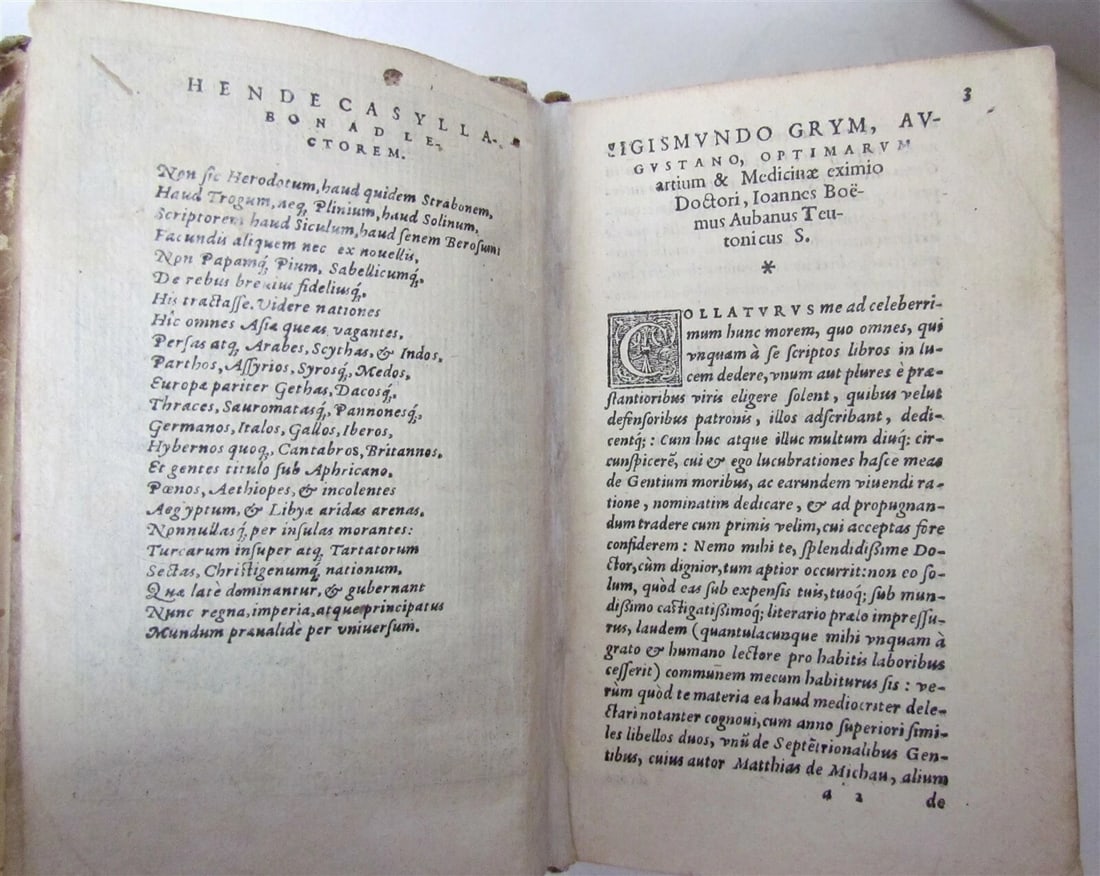 HENDECASYLLA-
BON AD LE-
CTOREM.
Non sic Herodotum, haud quidem Strabonem,
Haud Trogum, aeq́; Plinium, haud Solinum,
Scriptorem haud Siculum, haud senem Berosum
Facundũ aliquem nec ex nouellis,
Non Papamq́; Pium, Sabellicumq́;
De rebus breuius fideliusq́;
His tractasse. Videre nationes
Hic omnes Asiæ queas vagantes.
Persas atq; Arabes, Scythas, & Indos,
Parthos, Assyrios, Syrosq́; Medos,
Europæ pariter Gethas, Dacosq́;
Thraces, Sauromatasq́; Pannonesq́;
Germanos, Italos, Gallos, Iberos,
Hybernos quoq; Cantabros, Britannos.
Et gentes titulo sub Aphricano.
Pœnos, Aethiopes, & incolentes
Aegyptum, & Libyæ aridas arenas.
Nonnullasq́; per insulas morantes:
Turcarum insuper atq; Tartatorum
Sectas, Christigenumq́; nationum,
Quæ latè dominantur, & gubernant
Nunc regna, imperia, atque principatus
Mundum præualidè per vniuersum.
3
SIGISMVNDO GRYM, AV-
GVSTANO, OPTIMARVM
artium & Medicinæ eximio
Doctori, Ioannes Boë-
mus Aubanus Teu-
tonicus S.
*
COLLATVRVS me ad celeberri-
mum hunc morem, quo omnes, qui
vnquam à se scriptos libros in lu-
cem dedere, vnum aut plures è præ-
stantioribus viris eligere solent, quibus velut
defensoribus patronis, illos adscribant, dedi-
centq́;: Cum huc atque illuc multum diuq́; cir-
cunspicerẽ, cui & ego lucubrationes hasce meas
de Gentium moribus, ac earundem viuendi ra-
tione, nominatim dedicare, & ad propugnan-
dum tradere cum primis velim, cui acceptas fore
confiderem: Nemo mihi te, splendidissime Do-
ctor, cùm dignior, tum aptior occurrit: non eo so-
lum, quòd eas sub expensis tuis, tuoq; sub mun-
dissimo castigatissimoq; literario prælo impressu-
rus, laudem (quantulacunque mihi vnquam à
grato & humano lectore pro habitis laboribus
cesserit) communem mecum habiturus sis: ve-
rùm quòd te materia ea haud mediocriter dele-
ctari notanter cognoui, cum anno superiori simi-
les libellos duos, vnũ de Septẽtrionalibus Gen-
tibus, cuius autor Matthias de Michau, alium
a 2 de